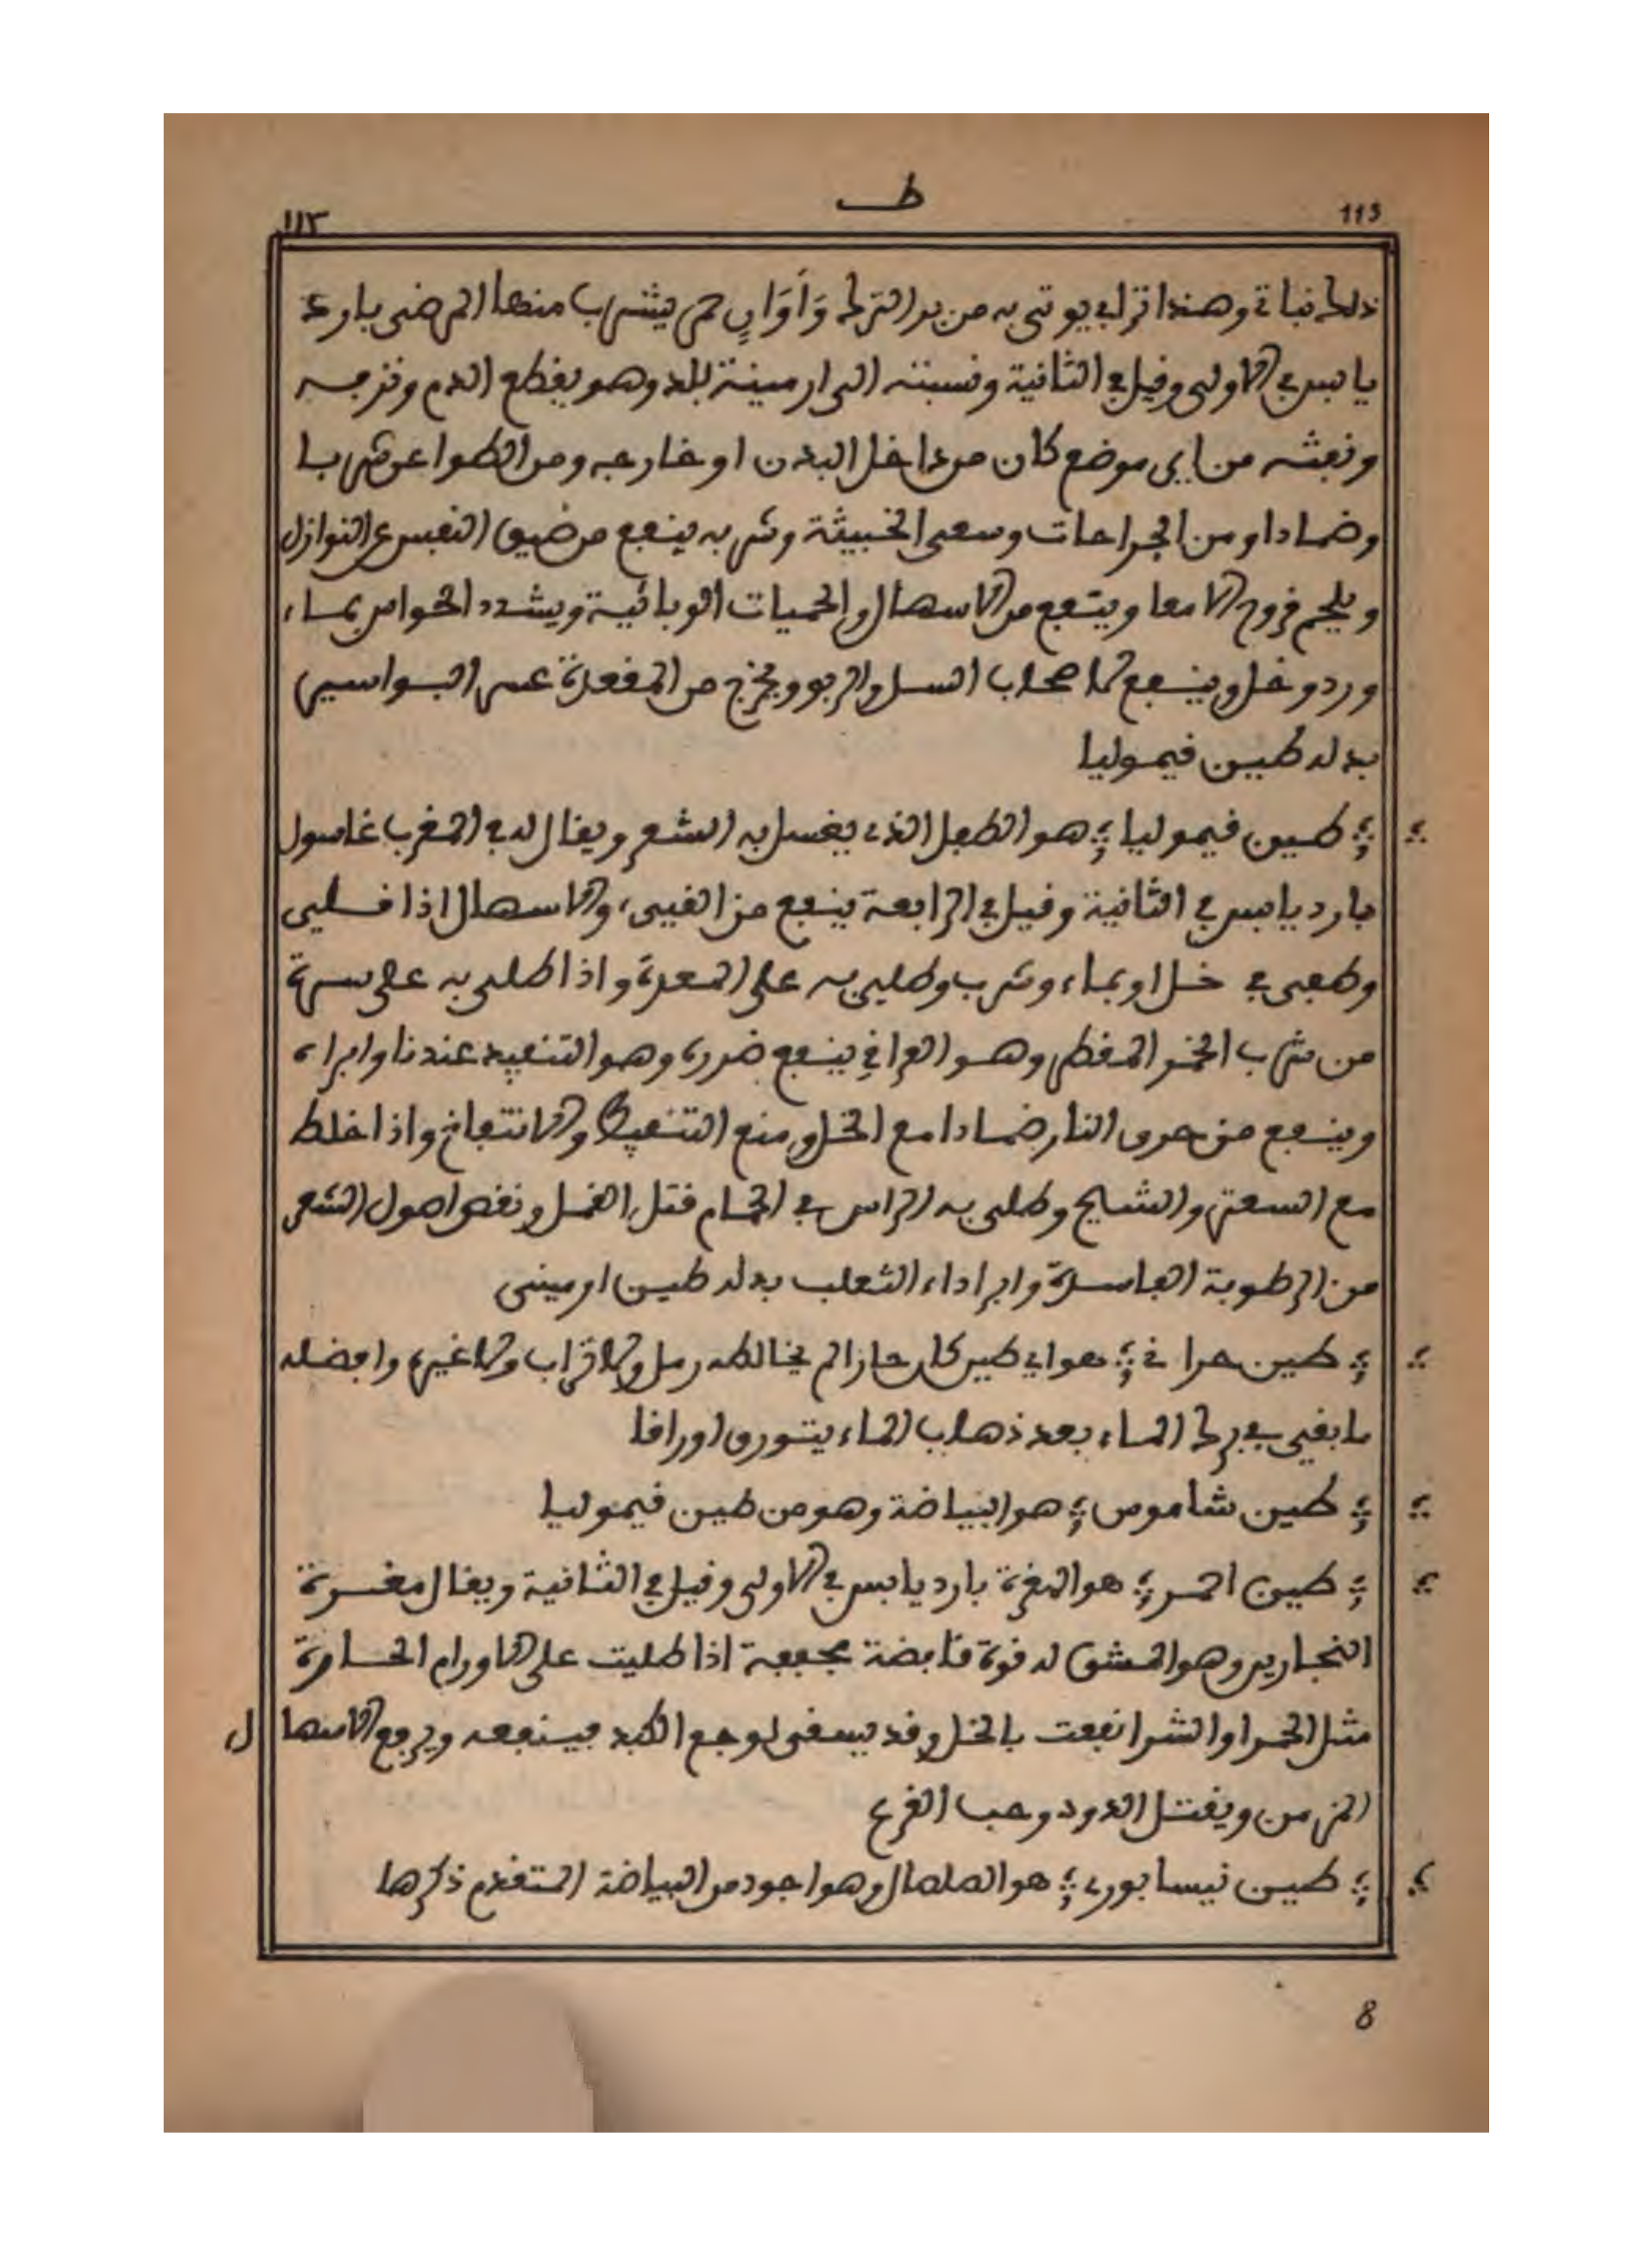 ط
١١٣
113
ذلك نباتي وهذا ترابي يوتى به من بر الترك وَأَوَانٍ حمر يشرب منها المرضى بارد
يابس في الاولى وقيل في الثانية ونسبته الى ارمينية بلد وهو يقطع الدم ونزفه
ونفثه من اي موضع كان من داخل البدن او خارجه ومن الطواعن شربا
وضمادا ومن الجراحات وسعى الخبيثة وشربه ينفع من ضيق النفس عن النوازل
ويلحم قروح الامعا وينفع من الاسهال والحميات الوبائية ويشدد الحواس بماء
ورد وخل وينفع لاصحاب السل والربو ويخرج من المقعدة عسر البواسير
بدله طين قيموليا
طين قيموليا هو الطفل الذي يغسل به الشعر ويقال له في المغرب غاسول
بارد يابس في الثانية وقيل في الرابعة ينفع من القيىء والاسهال اذا قلى
وطفى في خل او بماء وشرب وطلى به على المعدة واذا طلى به على سرة
من شرب الخمر المقطر وهو العراقي ينفع ضرره وهو التنفيد عندنا وابراه
وينفع من حرق النار ضمادا مع الخل ومنع التنفيط والانتفاخ واذا خلط
مع السعتر والشيح وطلى به الراس في الحمام قتل القمل ونقى اصول الشعر
من الرطوبة الفاسدة وابرا داء الثعلب بدله طين ارمينى
طين حرا في هو اي طين كان حار الم يخالطه رمل ولا تراب ولا غيره وافضله
ما بقى في برك الماء بعد ذهاب الماء يتورق اوراقا
طين شاموس هو البياضة وهو من طين قيموليا
طين احمر هو المغرة بارد يابس في الاولى وقيل في الثانية ويقال مغرة
النجارين وهو المشق له قوة قابضة مجففة اذا طليت على الاورام الحارة
مثل الحمرا والشرا نفعت بالخل وقد يسقى لوجع الكبد فينفعه ويرفع الاسهال
المزمن ويقتل الدود وحب القرع
طين نيسابوري هو الصلصال وهو اجود من البياضة المتقدم ذكرها
8